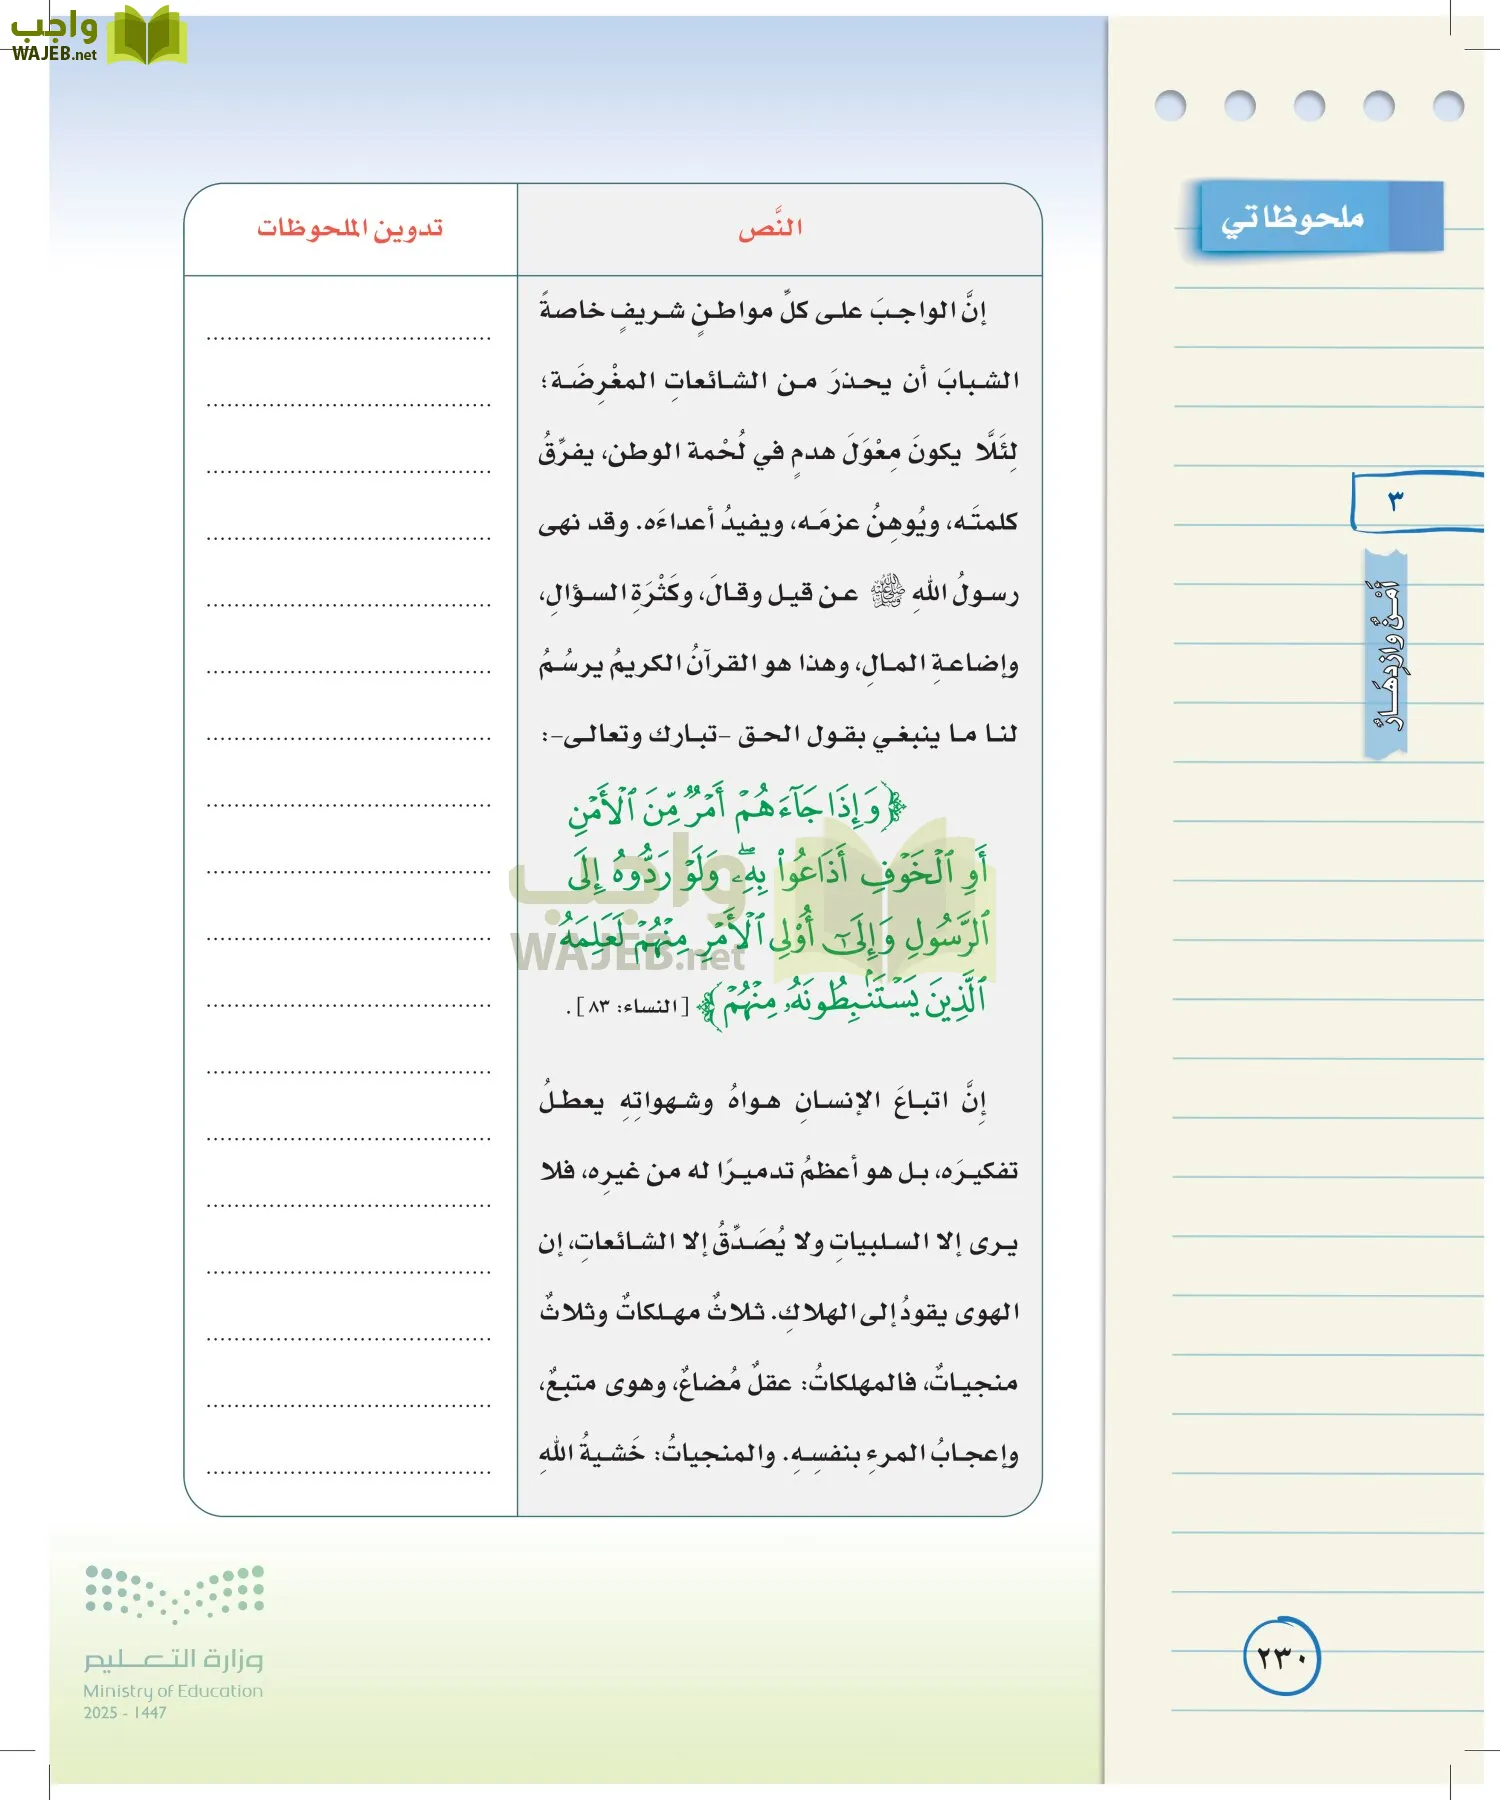 واجب
WAJEB.net
ملحوظاتي
٣
أَمْنٌ وازدِهَارٌ
النَّص
تدوين الملحوظات
إنَّ الواجبَ على كلِّ مواطنٍ شريفٍ خاصةً
الشبابَ أن يحذرَ من الشائعاتِ المغْرِضَة؛
لِئَلَّا يكونَ مِعْوَلَ هدمٍ في لُحْمة الوطن، يفرِّقُ
كلمتَه، ويُوهِنُ عزمَه، ويفيدُ أعداءَه. وقد نهى
رسولُ اللهِ ﷺ عن قيل وقالَ، وكَثْرَةِ السؤالِ،
وإضاعةِ المالِ، وهذا هو القرآنُ الكريمُ يرسُمُ
لنا ما ينبغي بقول الحق -تبارك وتعالى-:
﴿وَإِذَا جَآءَهُمۡ أَمۡرٞ مِّنَ ٱلۡأَمۡنِ
أَوِ ٱلۡخَوۡفِ أَذَاعُواْ بِهِۦۖ وَلَوۡ رَدُّوهُ إِلَى
ٱلرَّسُولِ وَإِلَىٰٓ أُوْلِي ٱلۡأَمۡرِ مِنۡهُمۡ لَعَلِمَهُ
ٱلَّذِينَ يَسۡتَنۢبِطُونَهُۥ مِنۡهُمۡ﴾ [النساء: ٨٣].
إنَّ اتباعَ الإنسانِ هواهُ وشهواتِهِ يعطلُ
تفكيرَه، بل هو أعظمُ تدميرًا له من غيرِه، فلا
يرى إلا السلبياتِ ولا يُصَدِّقُ إلا الشائعاتِ، إن
الهوى يقودُ إلى الهلاكِ. ثلاثٌ مهلكاتٌ وثلاثٌ
منجياتٌ، فالمهلكاتُ: عقلٌ مُضاعٌ، وهوى متبعٌ،
وإعجابُ المرءِ بنفسِهِ. والمنجياتُ: خَشيةُ اللهِ
واجب
WAJEB.net
وزارة التعليم
Ministry of Education
2025 - 1447
٢٣٠